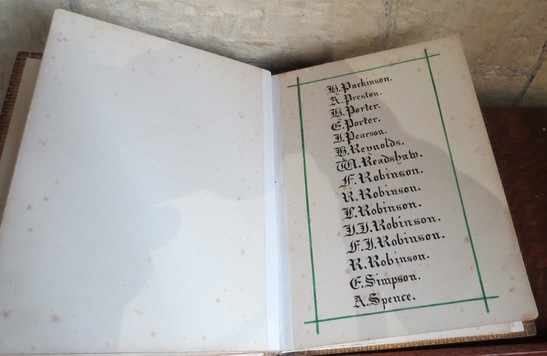 H. Parkinson.
A. Preston.
H. Porter.
E. Porter.
J. Pearson.
H. Reynolds.
W. Readshaw.
F. Robinson.
R. Robinson.
L. Robinson.
J. J. Robinson.
F. J. Robinson.
R. Robinson.
E. Simpson.
A. Spence.